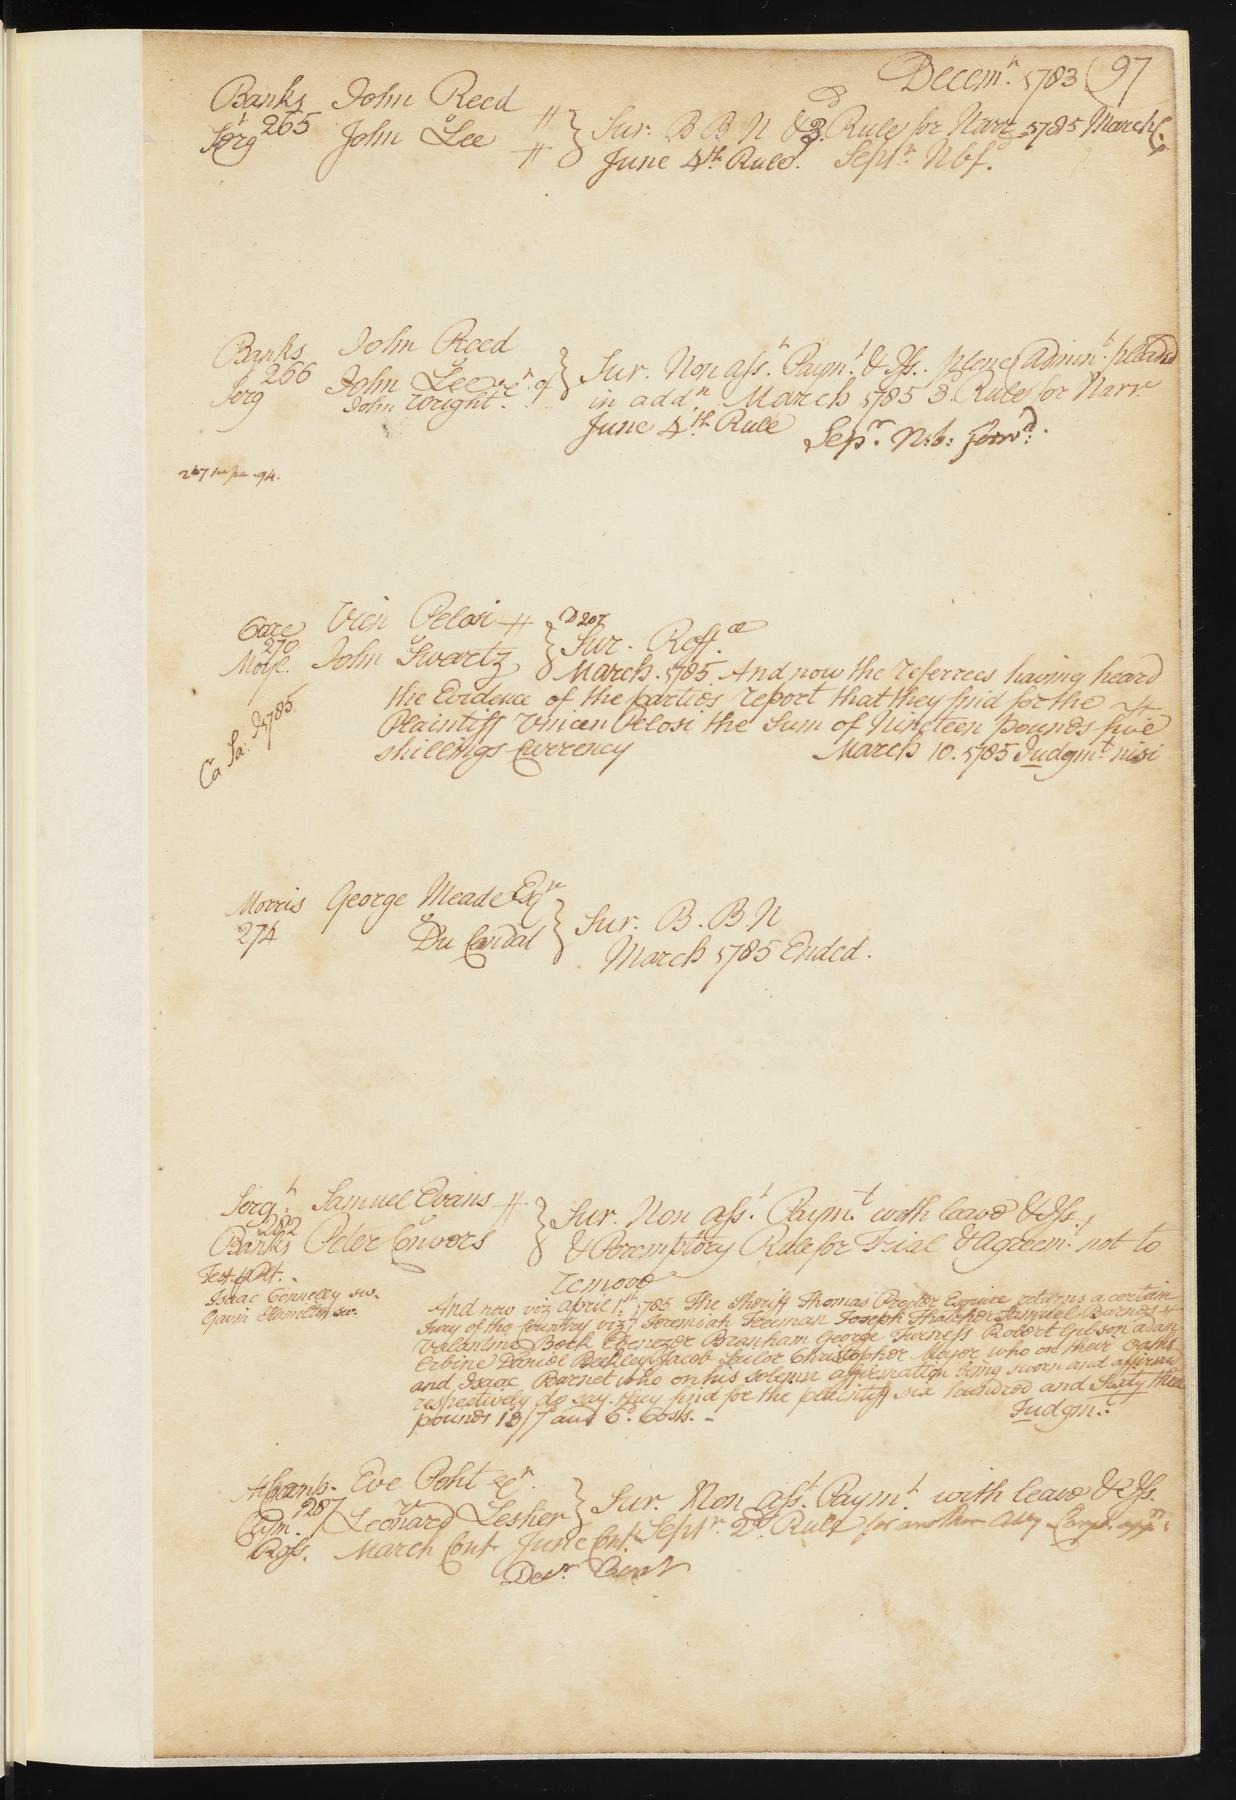 Decem.r 1783 (97
Banks John Reed
265 v
Serg John Lee } Sur. B B N & 3.d Rule for Narr 1785 March
June 4th Rule. Septr. Nbf.
Banks John Reed
266
Serg John Lee exr. of John Wright } Sur. Non ass.t Paym.t & Iss. plene Admin.t plead
in addn. March 1785 3. Rule for Narr
June 4th Rule Sepr. N.b:
94.
Vicn Pelosi
270 D 207
Moyl. John Swartz } Sur. Reff.ce
March. 1785. And now the referrees having heard
the Evidence of the parties report that they find for the
Plaintiff Vincen Pelosi the Sum of Nineteen pounds five
shillings Currency March 10. 1785 Judgm.t nisi
Ca Sa. 1785.
Morris George Meade Esqr
274 v
Du Condal } Sur. B. B. N
March 1785 Ended.
Serg.t Samuel Evans
282 v
Banks Peter Convers } Sur. Non ass.t Paym.t with leave & Iss.
& Peremptory Rule for Trial & agreem.t not to
remove
Test. p Plt.
Isaac Connelly sw.
Gavin Hamilton sw.
And now viz april 1st. 1785 The Sheriff Thomas Procter Esquire returns a certain
Jury of the Country vizt Jeremiah Freeman Joseph Thatcher Samuel Barnes
Valentine Bock Ebenezer Branham George Furness Robert Gibson adam
Erbine Daniel Beckley Jacob Sailor Christopher Moyer who on their oaths
and Isaac Barnet who on his solemn affirmation being sworn and affirmd
respectively do say they find for the plaintiff six hundred and Sixty three
pounds 18/7 and 6d. Costs. Judgm.t
Eve Poht exr.
287 v
Ross. Leonard Lesher } Sur. Non ass.t Paym.t with leave & Iss.
March Cont June Cont. Septr. 2d. Rule for another
Decr